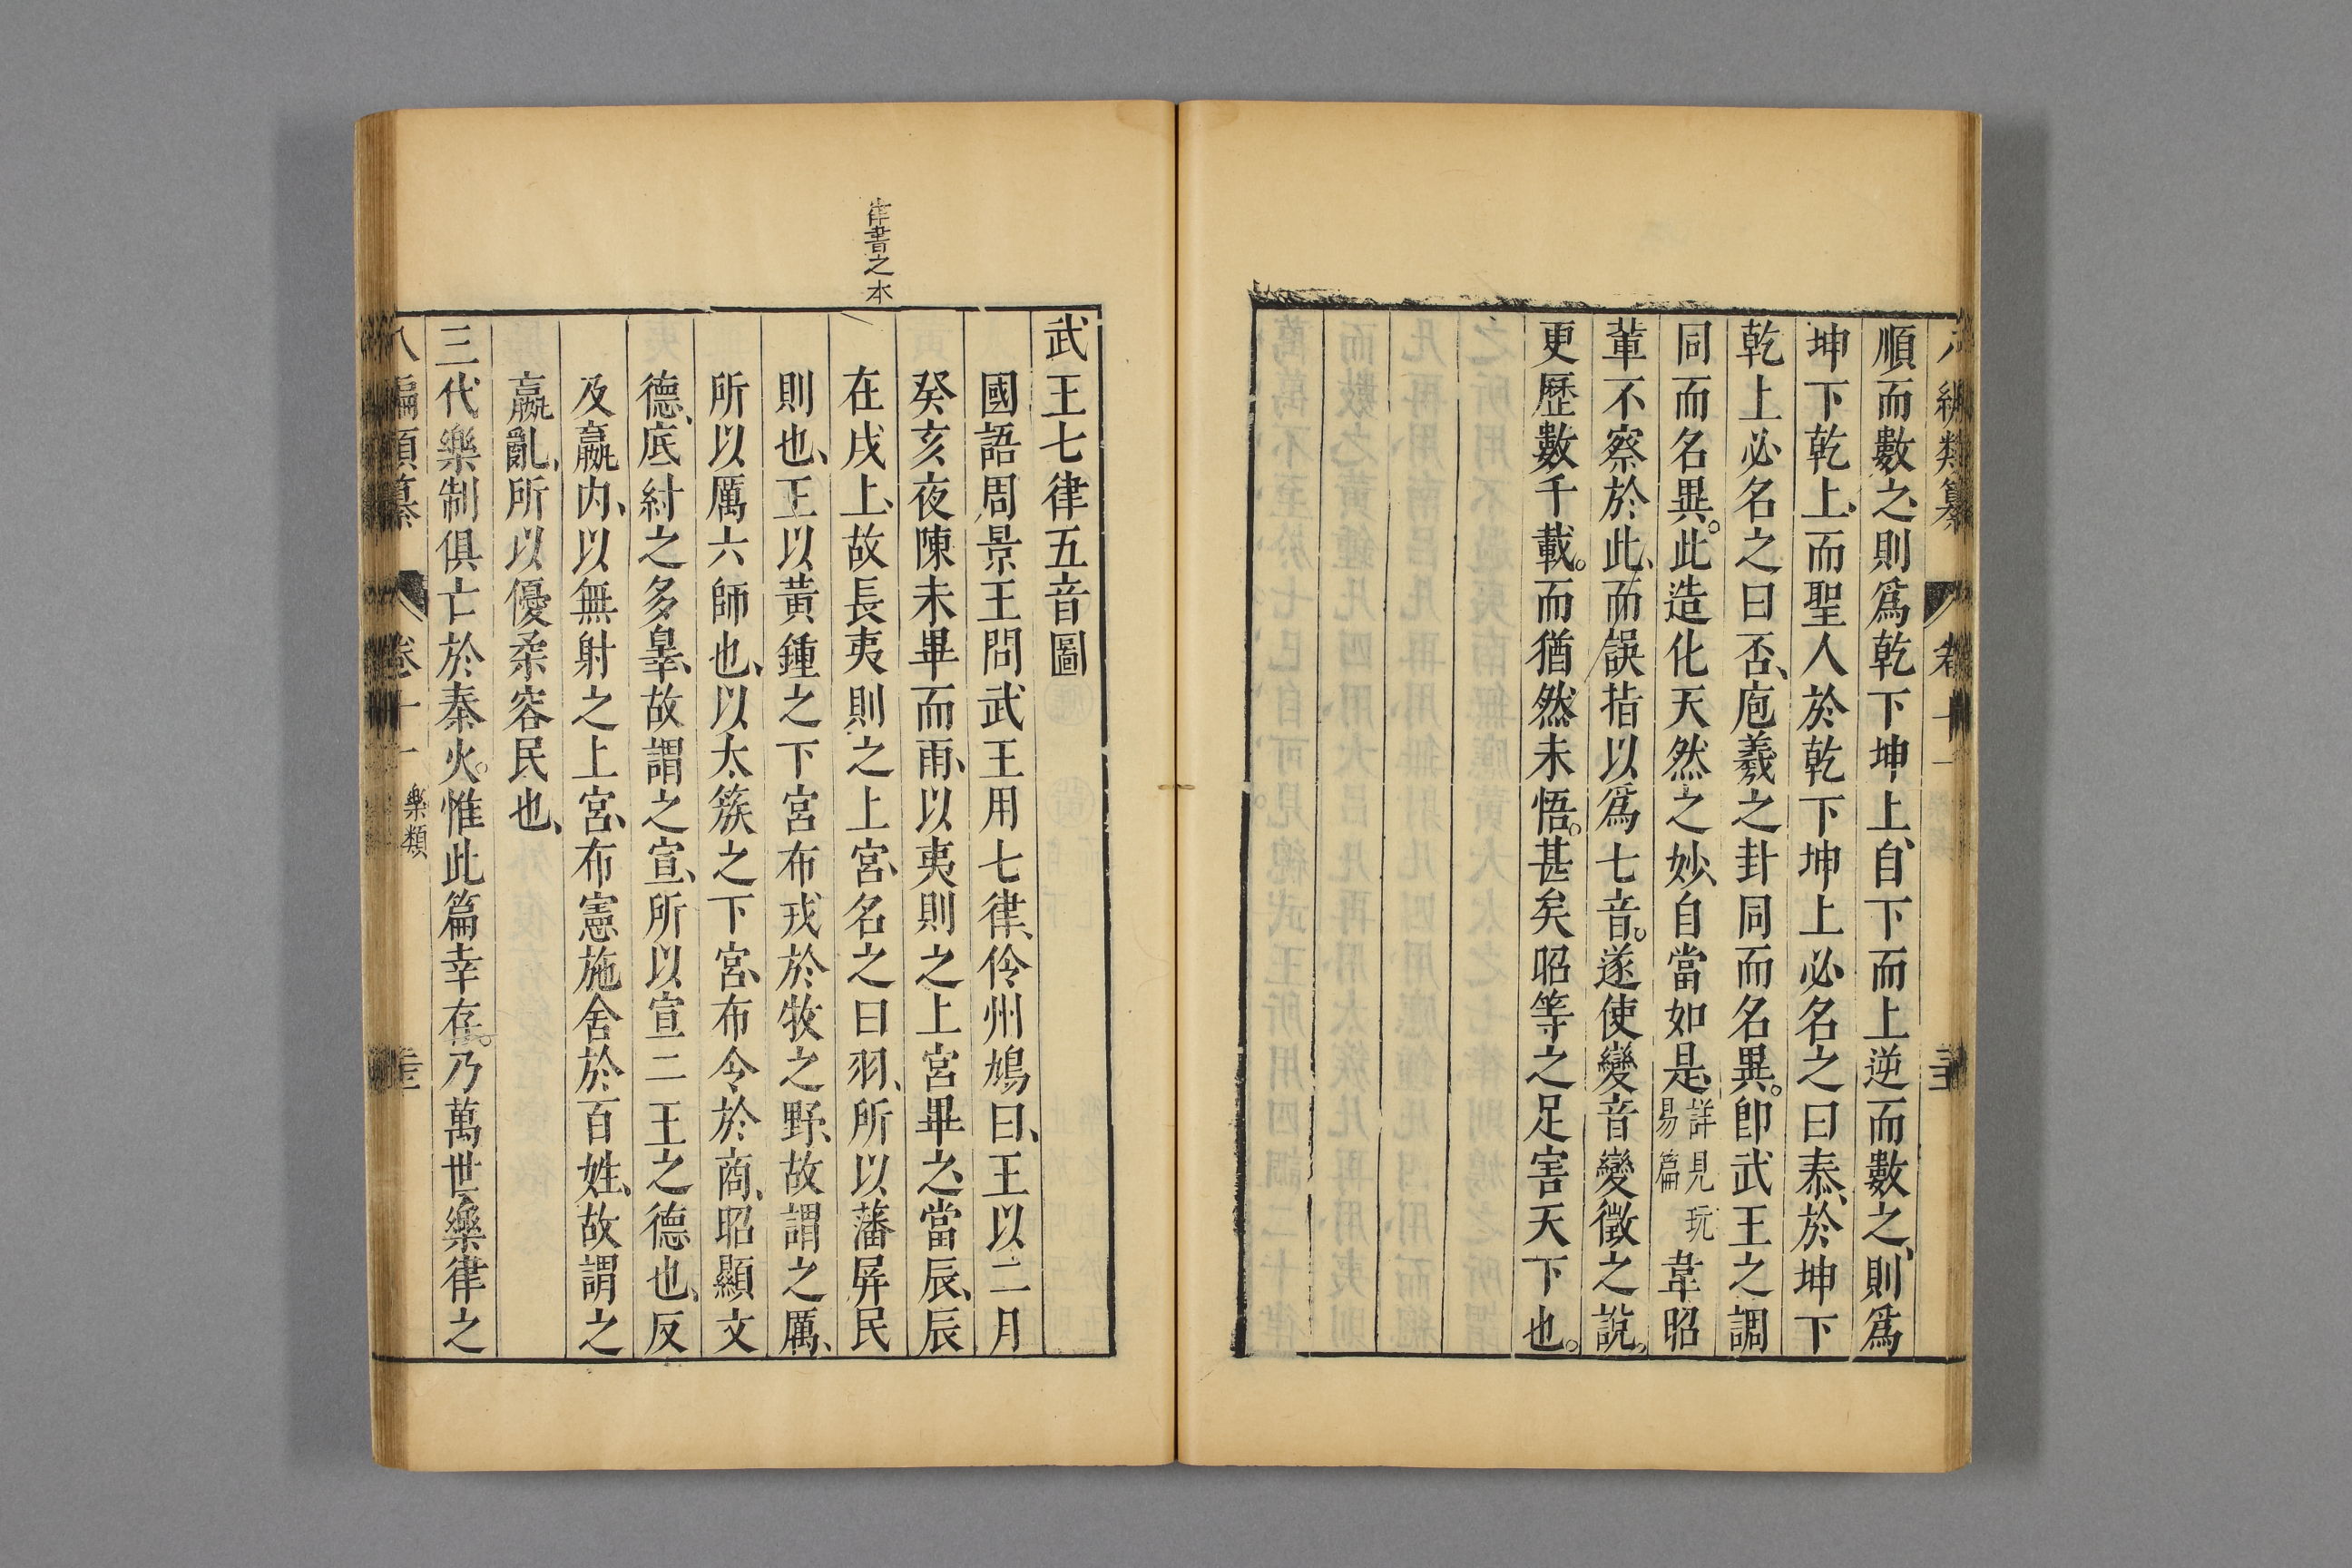 順而數之、則爲乾下坤上、自下而上逆而數之、則爲
坤下乾上、而聖人於乾下坤上必名之曰泰、於坤下
乾上必名之曰否、庖羲之卦同而名異。卽武王之調
同而名異。此造化天然之妙、自當如是、詳見玩易篇韋昭
輩不察於此、而誤指以爲七音。遂使變音變徵之說。
更歷數千載。而猶然未悟。甚矣昭等之足害天下也。
律書之本
武王七律五音圖
國語周景王問武王用七律、伶州鳩曰、王以二月
癸亥夜陳未畢而雨、以夷則之上宮畢之、當辰、辰
在戌上、故長夷則之上宮、名之曰羽、所以藩屏民
則也、王以黃鍾之下宮布戎於牧之野、故謂之厲、
所以厲六師也、以太簇之下宮、布令於商、昭顯文
德、底紂之多辠、故謂之宣、所以宣二王之德也、反
及嬴内、以無射之上宮、布憲施舍於百姓、故謂之
嬴亂、所以優柔容民也、
三代樂制俱亡於秦火。惟此篇幸存。乃萬世樂律之
八編類纂 卷十一 樂類